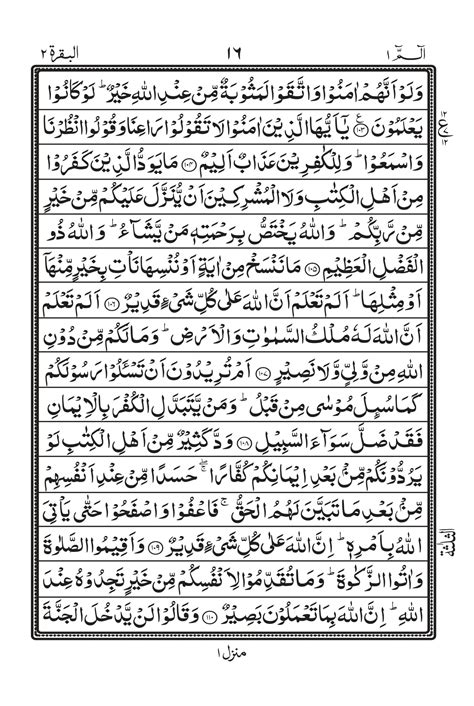 الٓـمّٓ ١ ١٦ البقرة ٢
وَلَوْ اَنَّهُمْ اٰمَنُوْا وَاتَّقَوْا لَمَثُوْبَةٌ مِّنْ عِنْدِ اللّٰهِ خَيْرٌ ؕ لَوْ كَانُوْا
يَعْلَمُوْنَ ۧ﴿۱۰۳﴾ يٰۤاَيُّهَا الَّذِيْنَ اٰمَنُوْا لَا تَقُوْلُوْا رَاعِنَا وَقُوْلُوا انْظُرْنَا
ع ١٢ ١٢
وَاسْمَعُوْا ؕ وَلِلْكٰفِرِيْنَ عَذَابٌ اَلِيْمٌ ﴿۱۰۴﴾ مَا يَوَدُّ الَّذِيْنَ كَفَرُوْا
مِنْ اَهْلِ الْكِتٰبِ وَلَا الْمُشْرِكِيْنَ اَنْ يُّنَزَّلَ عَلَيْكُمْ مِّنْ خَيْرٍ
مِّنْ رَّبِّكُمْ ؕ وَاللّٰهُ يَخْتَصُّ بِرَحْمَتِهٖ مَنْ يَّشَآءُ ؕ وَاللّٰهُ ذُو
الْفَضْلِ الْعَظِيْمِ ﴿۱۰۵﴾ مَا نَنْسَخْ مِنْ اٰيَةٍ اَوْ نُنْسِهَا نَاْتِ بِخَيْرٍ مِّنْهَاۤ
اَوْ مِثْلِهَا ؕ اَلَمْ تَعْلَمْ اَنَّ اللّٰهَ عَلٰى كُلِّ شَیْءٍ قَدِيْرٌ ﴿۱۰۶﴾ اَلَمْ تَعْلَمْ
اَنَّ اللّٰهَ لَهٗ مُلْكُ السَّمٰوٰتِ وَالْاَرْضِ ؕ وَمَا لَكُمْ مِّنْ دُوْنِ
اللّٰهِ مِنْ وَّلِيٍّ وَّلَا نَصِيْرٍ ﴿۱۰۷﴾ اَمْ تُرِيْدُوْنَ اَنْ تَسْـَٔلُوْا رَسُوْلَكُمْ
كَمَا سُىِٕلَ مُوْسٰى مِنْ قَبْلُ ؕ وَمَنْ يَّتَبَدَّلِ الْكُفْرَ بِالْاِيْمَانِ
فَقَدْ ضَلَّ سَوَآءَ السَّبِيْلِ ﴿۱۰۸﴾ وَدَّ كَثِيْرٌ مِّنْ اَهْلِ الْكِتٰبِ لَوْ
يَرُدُّوْنَكُمْ مِّنْۢ بَعْدِ اِيْمَانِكُمْ كُفَّارًا ۖۚ حَسَدًا مِّنْ عِنْدِ اَنْفُسِهِمْ
مِّنْۢ بَعْدِ مَا تَبَيَّنَ لَهُمُ الْحَقُّ ۚ فَاعْفُوْا وَاصْفَحُوْا حَتّٰى يَاْتِيَ
اللّٰهُ بِاَمْرِهٖ ؕ اِنَّ اللّٰهَ عَلٰى كُلِّ شَیْءٍ قَدِيْرٌ ﴿۱۰۹﴾ وَاَقِيْمُوا الصَّلٰوةَ
الثلثة
وَاٰتُوا الزَّكٰوةَ ؕ وَمَا تُقَدِّمُوْا لِاَنْفُسِكُمْ مِّنْ خَيْرٍ تَجِدُوْهُ عِنْدَ
اللّٰهِ ؕ اِنَّ اللّٰهَ بِمَا تَعْمَلُوْنَ بَصِيْرٌ ﴿۱۱۰﴾ وَقَالُوْا لَنْ يَّدْخُلَ الْجَنَّةَ
منزل ١